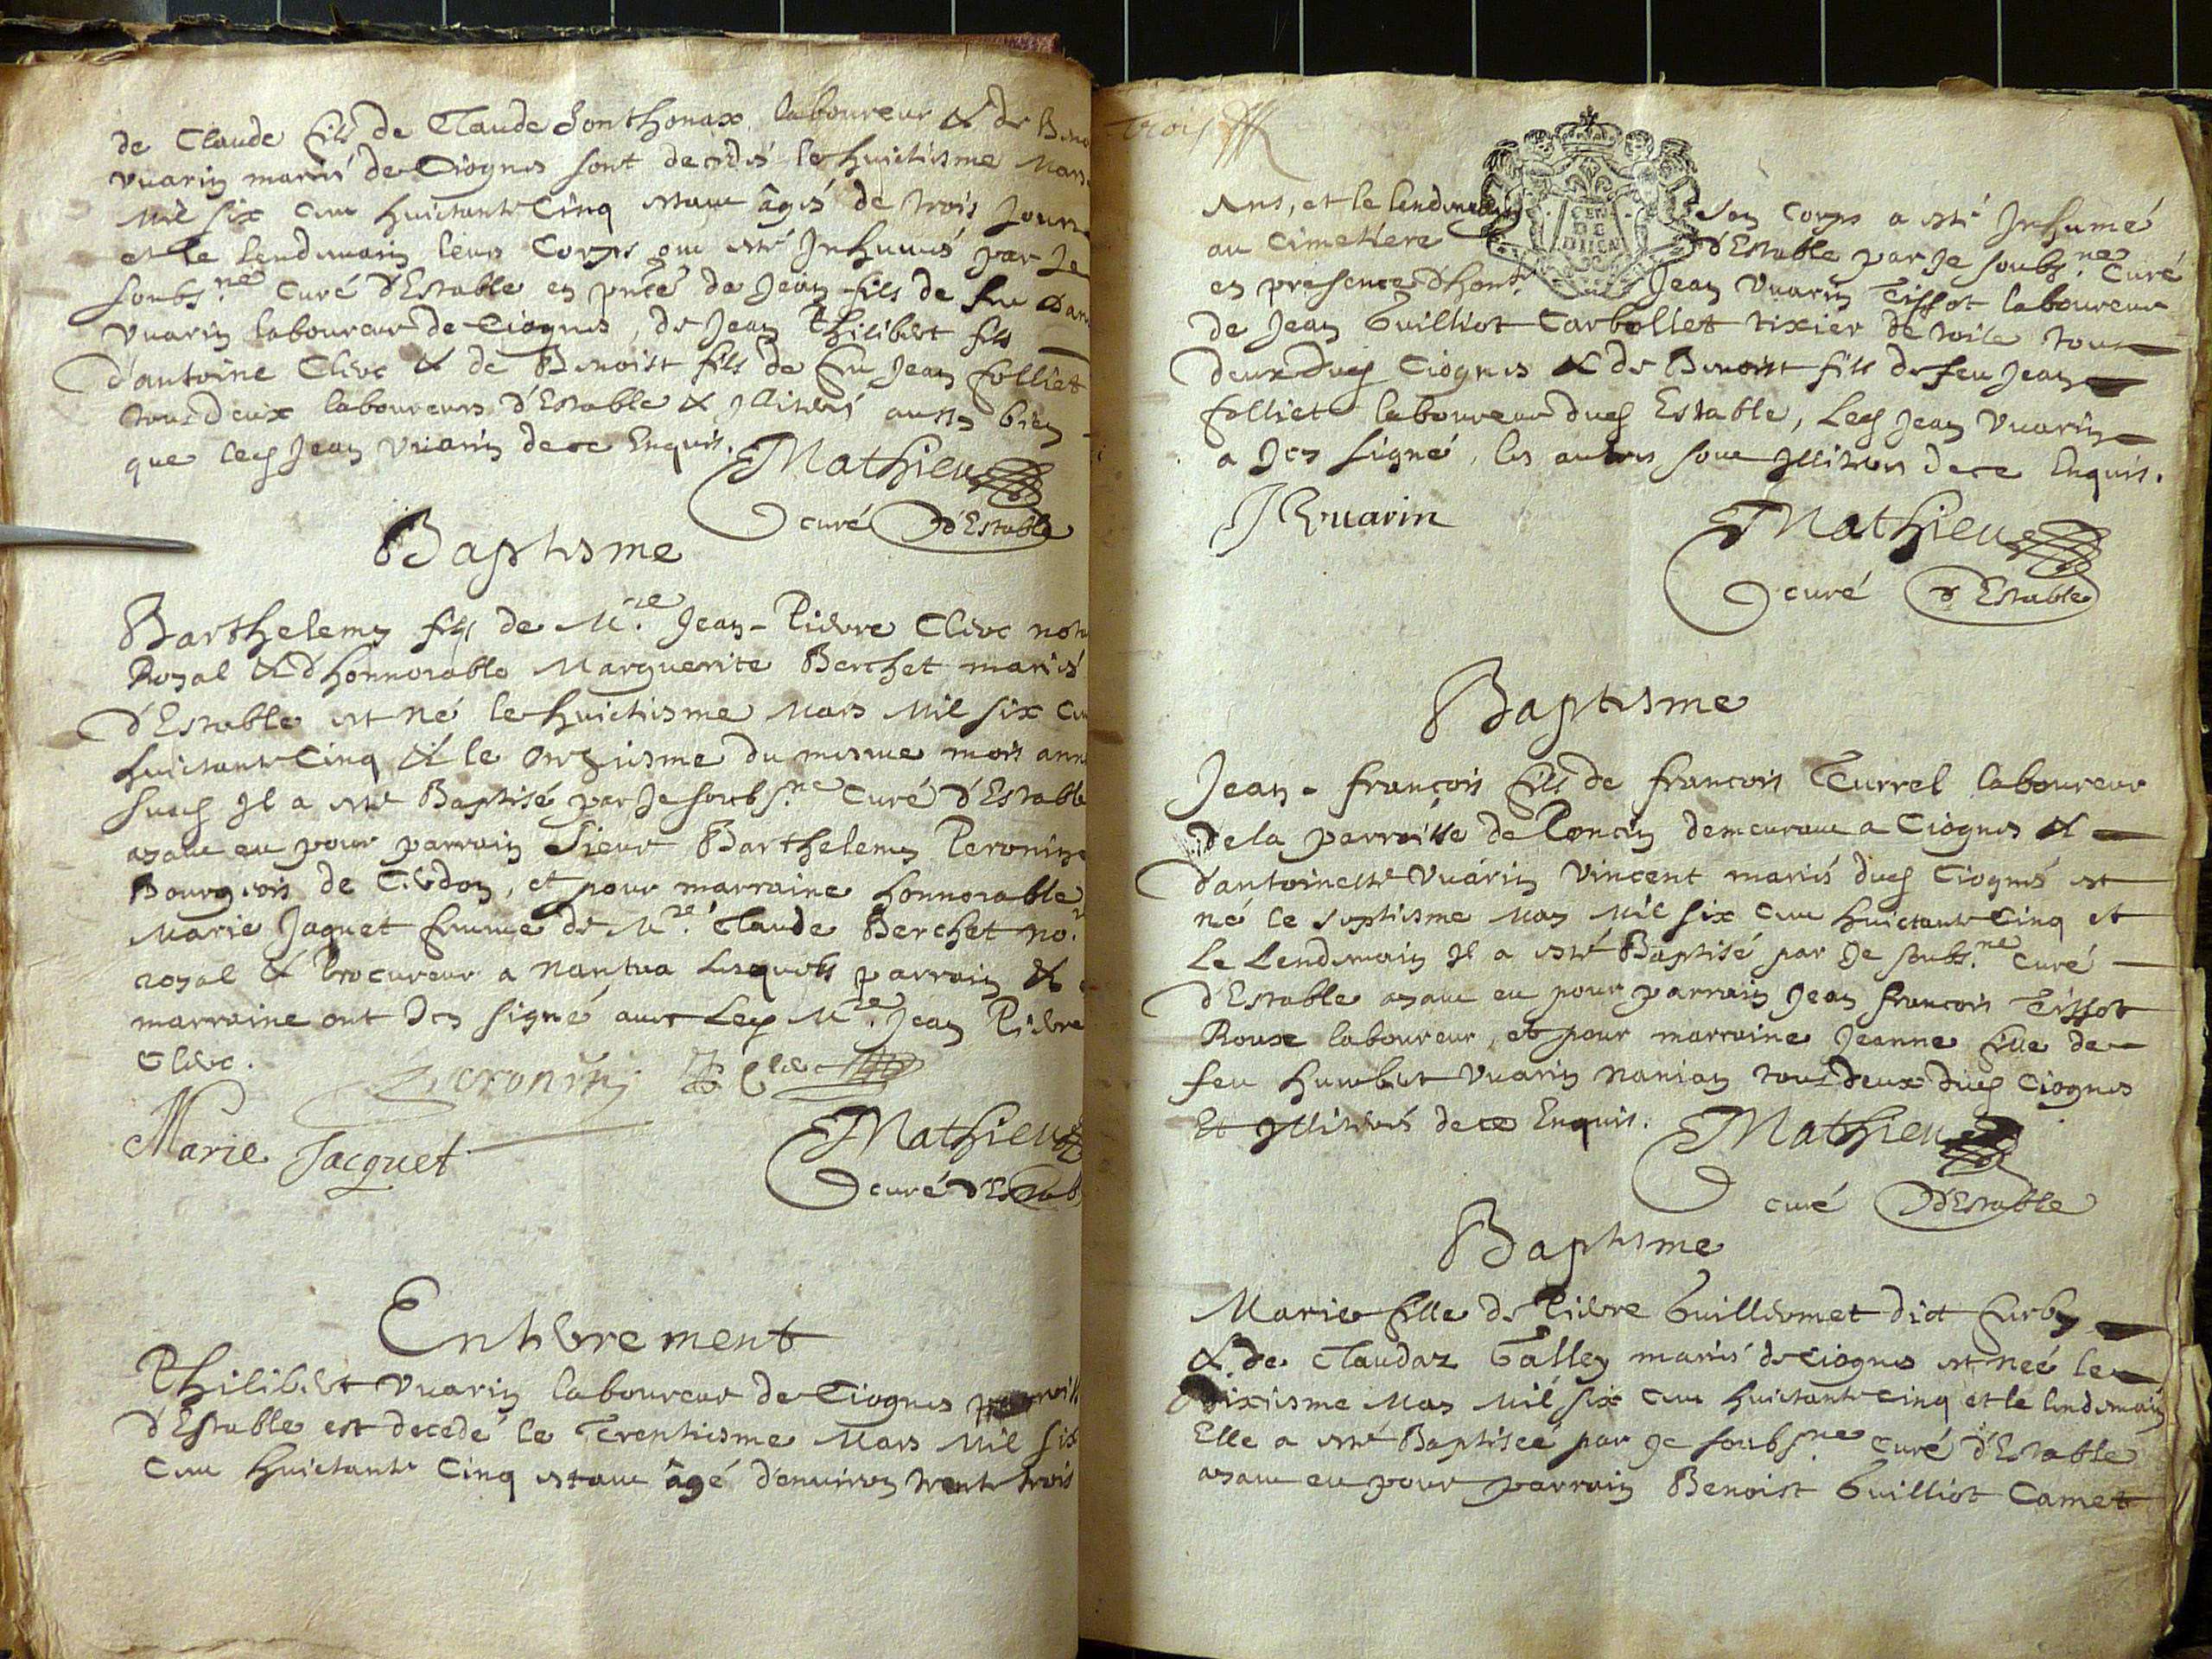 de Claude fils de Claude Sonthonax laboureur & de
Vuarin mariés de Ciognes sont decedés le huictiesme Mars
Mil six cent huictante Cinq estant âgés de trois Jours
et le lendemain leurs Corps ont esté Inhumés par Je
soubs.né Curé d'Estable en pnce de Jean fils de feu
Vuarin laboureur de Ciognes, de Jean Philibert fils
d'antoine Clerc & de Benoist fils de feu Jean folliet
tous deux laboureurs d'Estable & Illiterés aussy bien
que led Jean Vuarin de ce Enquis.
Mathieu
curé d'Estable
Baptesme
Barthelemy fils de Mre Jean-Pierre Clerc
Royal & d'honnorable Marguerite Berchet mariés
d'Estable est né le huictiesme Mars Mil six
huictante Cinq & le onziesme du mesme mois
susd Il a esté Baptisé par Je soubs.né Curé d'Estable
ayant eu pour parrain Sieur Barthelemy Peroniny
Bourgeois de Cerdon, et pour marraine honnorable
Marie Jaquet femme de Mre Claude Berchet no.re
royal & Procureur a Nantua lesquels parrain &
marraine ont Icy signé avec Led Mre Jean Pierre
Clerc.
Peroniny Clerc
Marie Jacquet
Mathieu
curé d'Estab
Enterrement
Philibert Vuarin laboureur de Ciognes
d'Estable est decedé le Trentiesme Mars Mil six
Cent huictante Cinq estant âgé d'environ trente trois
Trois
Ans, et le lendemain son Corps a esté Inhumé
au Cimetiere d'Estable par Je soubs.né Curé
en presence d'hon. Jean Vuarin Tissot laboureur
de Jean Guilliot Carbollet tixier de toile tous
deux dud Ciognes & de Benoist fils de feu Jean
folliet laboureur dud Estable, Led Jean Vuarin
a Icy signé, les autres sont Illiterés de ce Enquis.
J Vuarin
Mathieu
curé d'Estable
Baptesme
Jean-françois fils de françois Turrel laboureur
de la parroisse de Poncin demeurant a Ciognes &
d'antoinette Vuarin Vincent mariés dud Ciognes est
né le septiesme May Mil six Cent huictante Cinq et
Le Lendemain Il a esté Baptisé par Je soubs.né Curé
d'Estable ayant eu pour parrain Jean françois Tissot
Roux laboureur, et pour marraine Jeanne fille de
feu humbert Vuarin Nanian tous deux dud Ciognes
Et Illiterés de ce Enquis.
Mathieu
curé d'Estable
Baptesme
Marie fille de Pierre Guillermet dict furby
& de Claudaz Galley mariés de Ciognes est neé le
dixiesme May Mil six Cent huictante Cinq et le lendemain
Elle a esté Baptiseé par Je soubs.né Curé d'Estable
ayant eu pour parrain Benoist Guilliot Camet